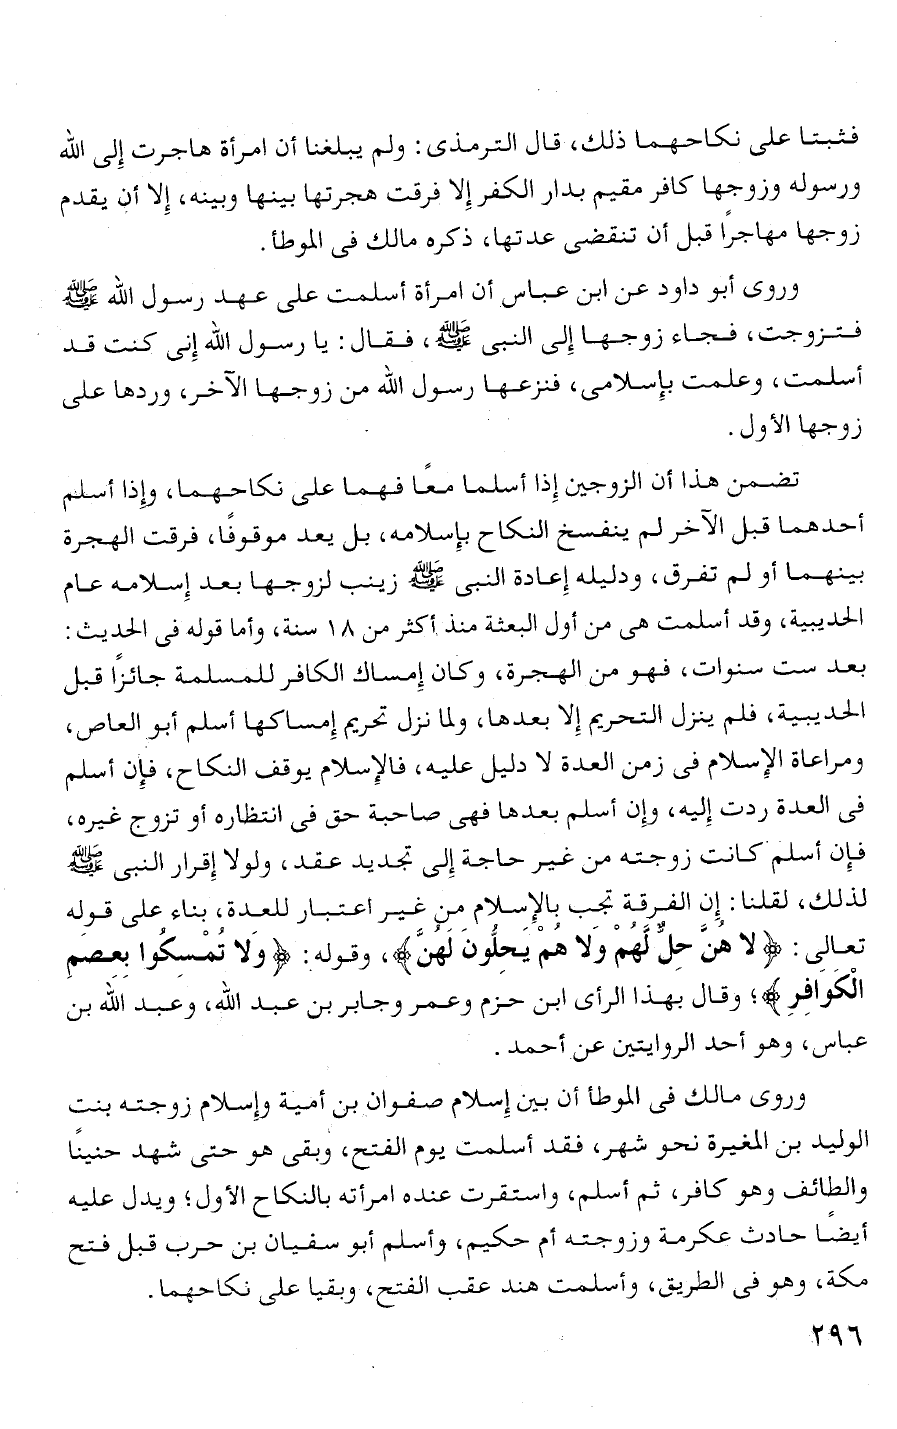 فثبتا على نكاحهما ذلك، قال الترمذى: ولم يبلغنا أن امرأة هاجرت إلى الله
ورسوله وزوجها كافر مقيم بدار الكفر إلا فرقت هجرتها بينها وبينه، إلا أن يقدم
زوجها مهاجرًا قبل أن تنقضى عدتها، ذكره مالك فى الموطأ.
وروى أبو داود عن ابن عباس أن امرأة أسلمت على عهد رسول الله ﷺ
فتزوجت، فجاء زوجها إلى النبى ﷺ، فقال: يا رسول الله إنى كنت قد
أسلمت، وعلمت بإسلامى، فنزعها رسول الله من زوجها الآخر، وردها على
زوجها الأول.
تضمن هذا أن الزوجين إذا أسلما معًا فهما على نكاحهما، وإذا أسلم
أحدهما قبل الآخر لم ينفسخ النكاح بإسلامه، بل يعد موقوفًا، فرقت الهجرة
بينهما أو لم تفرق، ودليله إعادة النبى ﷺ زينب لزوجها بعد إسلامه عام
الحديبية، وقد أسلمت هى من أول البعثة منذ أكثر من ١٨ سنة، وأما قوله فى الحديث:
بعد ست سنوات، فهو من الهجرة، وكان إمساك الكافر للمسلمة جائزًا قبل
الحديبية، فلم ينزل التحريم إلا بعدها، ولما نزل تحريم إمساكها أسلم أبو العاص،
ومراعاة الإسلام فى زمن العدة لا دليل عليه، فالإسلام يوقف النكاح، فإن أسلم
فى العدة ردت إليه، وإن أسلم بعدها فهى صاحبة حق فى انتظاره أو تزوج غيره،
فإن أسلم كانت زوجته من غير حاجة إلى تجديد عقد، ولولا إقرار النبى ﷺ
لذلك، لقلنا: إن الفرقة تجب بالإسلام من غير اعتبار للعدة، بناء على قوله
تعالى: ﴿لا هُنَّ حِلٌّ لَّهُمْ ولا هُمْ يَحِلُّونَ لَهُنَّ﴾، وقوله: ﴿ولا تُمْسِكُوا بِعِصَمِ
الْكَوَافِرِ﴾؛ وقال بهذا الرأى ابن حزم وعمر وجابر بن عبد الله، وعبد الله بن
عباس، وهو أحد الروايتين عن أحمد.
وروى مالك فى الموطأ أن بين إسلام صفوان بن أمية وإسلام زوجته بنت
الوليد بن المغيرة نحو شهر، فقد أسلمت يوم الفتح، وبقى هو حتى شهد حنينًا
والطائف وهو كافر، ثم أسلم، واستقرت عنده امرأته بالنكاح الأول؛ ويدل عليه
أيضًا حادث عكرمة وزوجته أم حكيم، وأسلم أبو سفيان بن حرب قبل فتح
مكة، وهو فى الطريق، وأسلمت هند عقب الفتح، وبقيا على نكاحهما.
٢٩٦